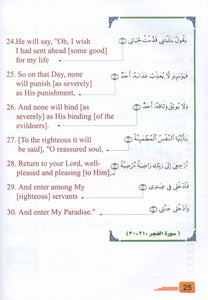 يَقُولُ يَٰلَيْتَنِي قَدَّمْتُ لِحَيَاتِي
24.He will say, "Oh, I wish
I had sent ahead [some good]
for my life
فَيَوْمَئِذٍ لَّا يُعَذِّبُ عَذَابَهُۥٓ أَحَدٌ
25. So on that Day, none
will punish [as severely]
as His punishment,
وَلَا يُوثِقُ وَثَاقَهُۥٓ أَحَدٌ
26. And none will bind [as
severely] as His binding [of
the evildoers].
يَٰٓأَيَّتُهَا ٱلنَّفْسُ ٱلْمُطْمَئِنَّةُ
27. [To the righteous it will
be said], "O reassured soul,
ٱرْجِعِىٓ إِلَىٰ رَبِّكِ رَاضِيَةً مَّرْضِيَّةً
28. Return to your Lord, well-
pleased and pleasing [to Him],
فَٱدْخُلِى فِى عِبَٰدِى
29. And enter among My
[righteous] servants
وَٱدْخُلِى جَنَّتِى
30. And enter My Paradise."
(سورة الفجر ٢١-٣٠)
25